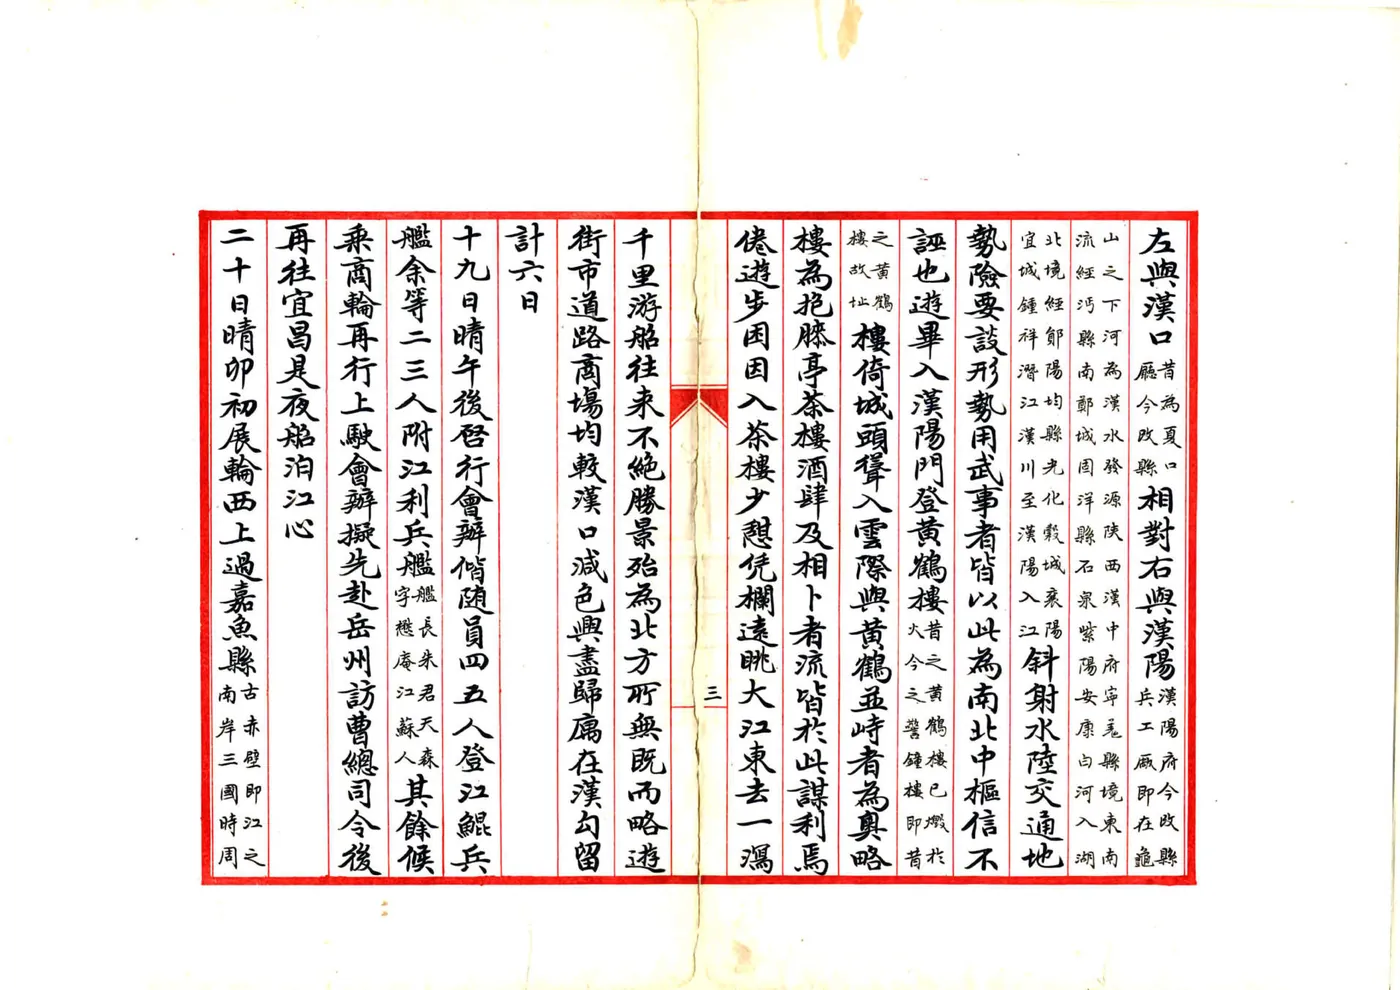 左與漢口昔為夏口廳今改縣相對右與漢陽漢陽府今改縣兵工廠即在龜
山之下河為漢水發源陝西漢中府寧羌縣境東南
流經沔縣南鄭城固洋縣石泉紫陽安康白河入湖
北境經鄖陽均縣光化穀城襄陽宜城鍾祥潛江漢川至漢陽入江斜射水陸交通地
勢險要設形勢用武事者皆以此為南北中樞信不
誣也遊畢入漢陽門登黃鶴樓昔之黃鶴樓已燬於火今之警鐘樓即昔
之黃鶴樓故址樓倚城頭聳入雲際與黃鶴並峙者為奧略
樓為抱膝亭茶樓酒肆及相卜者流皆於此謀利焉
倦遊步困因入茶樓少憇凭欄遠眺大江東去一瀉
三
千里游船往来不絕勝景殆為北方所無既而略遊
街市道路商場均較漢口減色興盡歸寓在漢勾留
計六日
十九日晴午後啓行會辦偕随員四五人登江鯤兵
艦余等二三人附江利兵艦艦長朱君天森字懋庵江蘇人其餘候
乘商輪再行上駛會辦擬先赴岳州訪曹總司令後
再往宜昌是夜船泊江心
二十日晴卯初展輪西上過嘉魚縣古赤壁即江之南岸三國時周